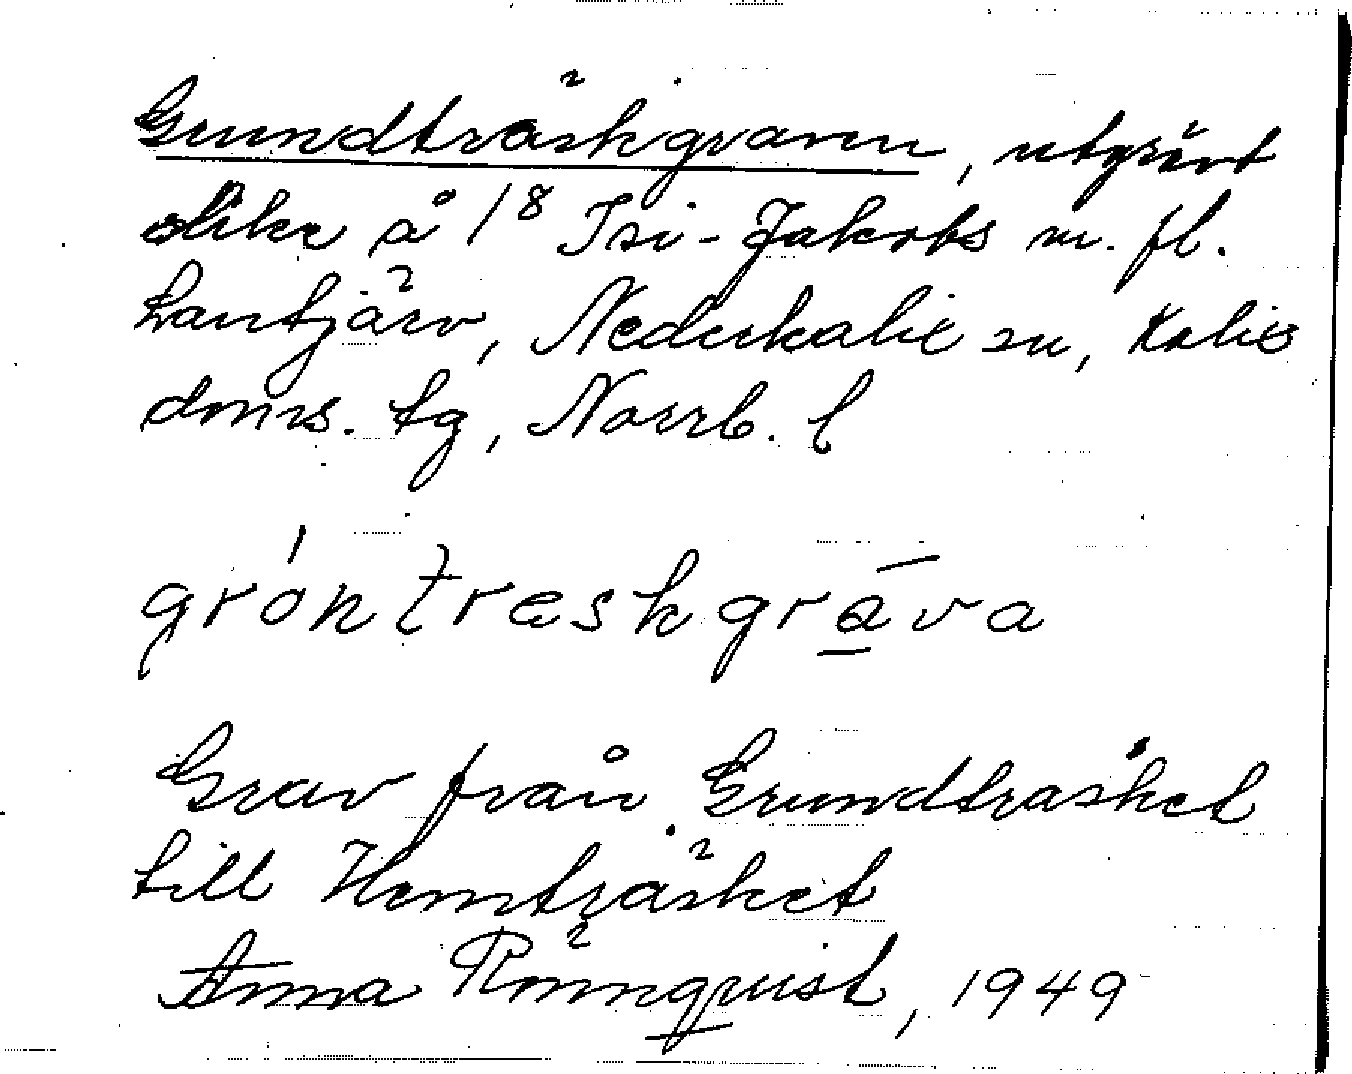 Grundträskgraven, utgrävt
dike å 1⁸ Isi-Jakobs m. fl.
Lantjärv, Nederkalix sn, Kalix
doms. tg, Norrb. l
gróntræskgrāva
Grav från Grundträsket
till Hemträsket
Anna Rönnquist, 1949